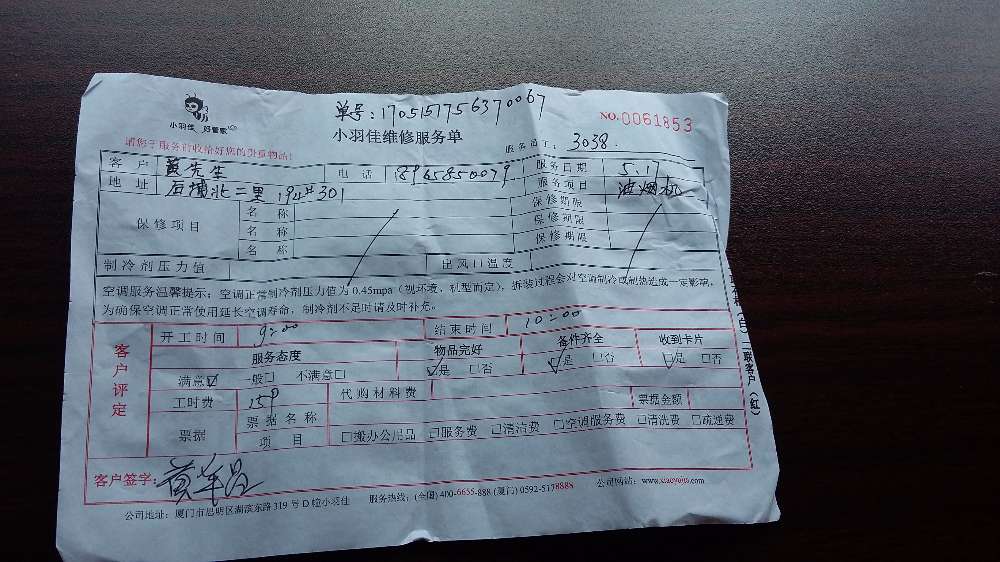 单号:170515775637006​7
小羽佳 好管家
小羽佳维修服务单
NO.0061853
请您于服务前收拾好您的贵重物品!
服务员工: 3038
客户 黄先生 电话 18965850079 服务日期 5.17
地址 后埔北二里194#301 服务项目 油烟机
保修项目 名称 保修期限
名称 保修期限
名称 保修期限
制冷剂压力值 出风口温度
空调服务温馨提示:空调正常制冷剂压力值为0.45mpa(视环境、机型而定),拆装过程会对空调制冷或制热造成一定影响,
为确保空调正常使用延长空调寿命,制冷剂不足时请及时补充。
客户评定
开工时间 9:00 结束时间 10:00
服务态度 物品完好 备件齐全 收到卡片
满意☑ 一般□ 不满意□ ☑是 □否 ☑是 □否 ☑是 □否
工时费 150 代购材料费 票据金额
票据 票据名称
项目 □搬办公用品 □服务费 □清洁费 □空调服务费 □清洗费 □疏通费
(白)二联客户(红)
客户签字:
公司地址:厦门市思明区湖滨东路319号D幢小羽佳 服务热线:(全国)400-6655-888 (厦门)0592-5178888 公司网站:www.xiaoyujia.com